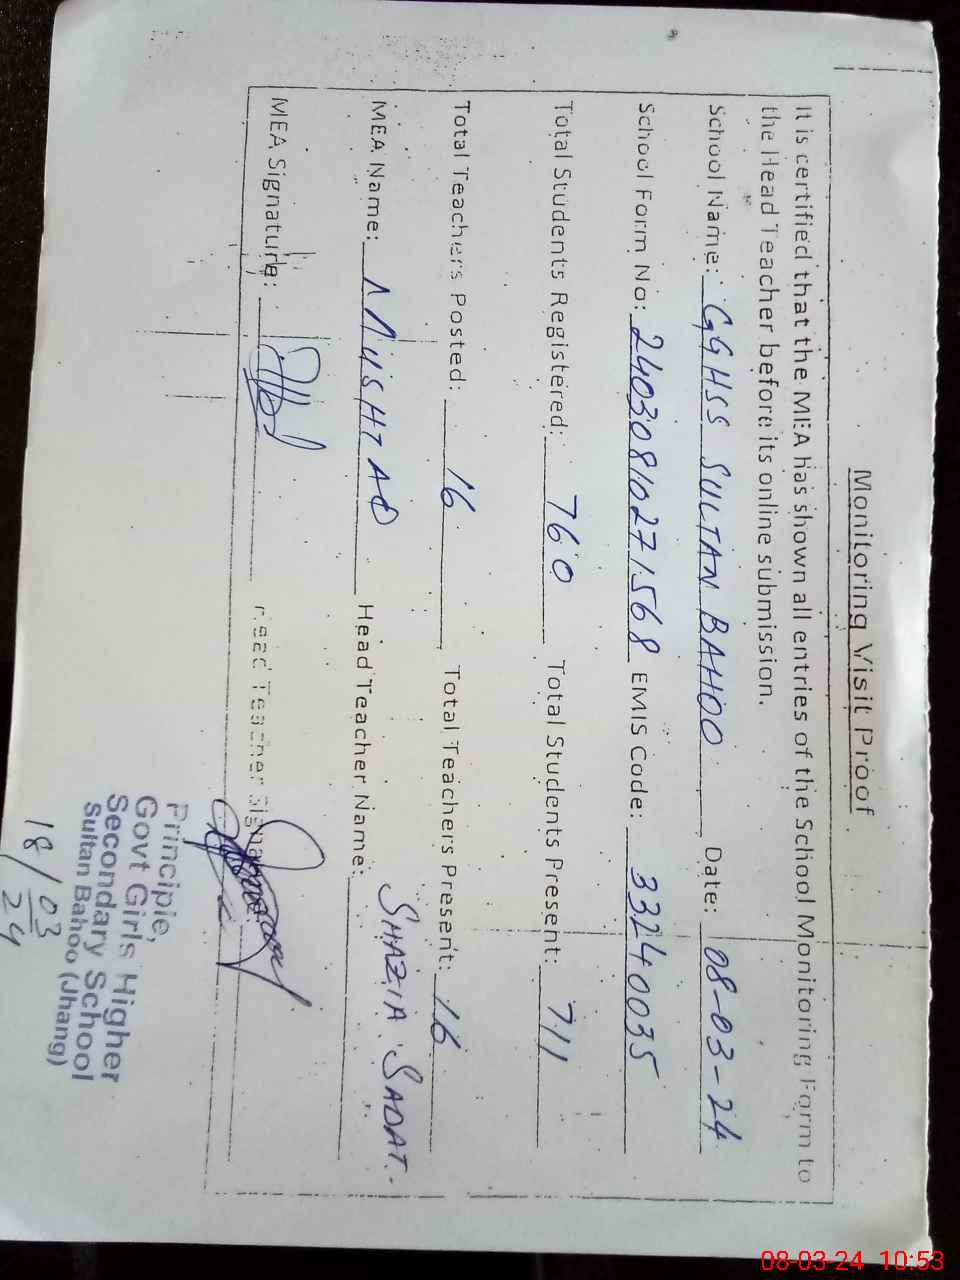 Monitoring Visit Proof
It is certified that the MEA has shown all entries of the School Monitoring Form to
the Head Teacher before its online submission.
School Name: GGHSS SULTAN BAHOO Date: 08-03-24
School Form No: 24030810271568 EMIS Code: 33240035
Total Students Registered: 760 Total Students Present: 711
Total Teachers Posted: 16 Total Teachers Present: 16
MEA Name: MUSHTAQ Head Teacher Name: SHAZIA SADAT.
MEA Signature: Head Teacher Signa
Principle,
Govt Girls Higher
Secondary School
Sultan Bahoo (Jhang)
18/03
24
08-03-24 10:53